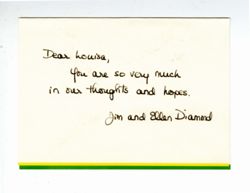 Dear Louisa,
You are so very much
in our thoughts and hopes.
Jim and Ellen Diamond